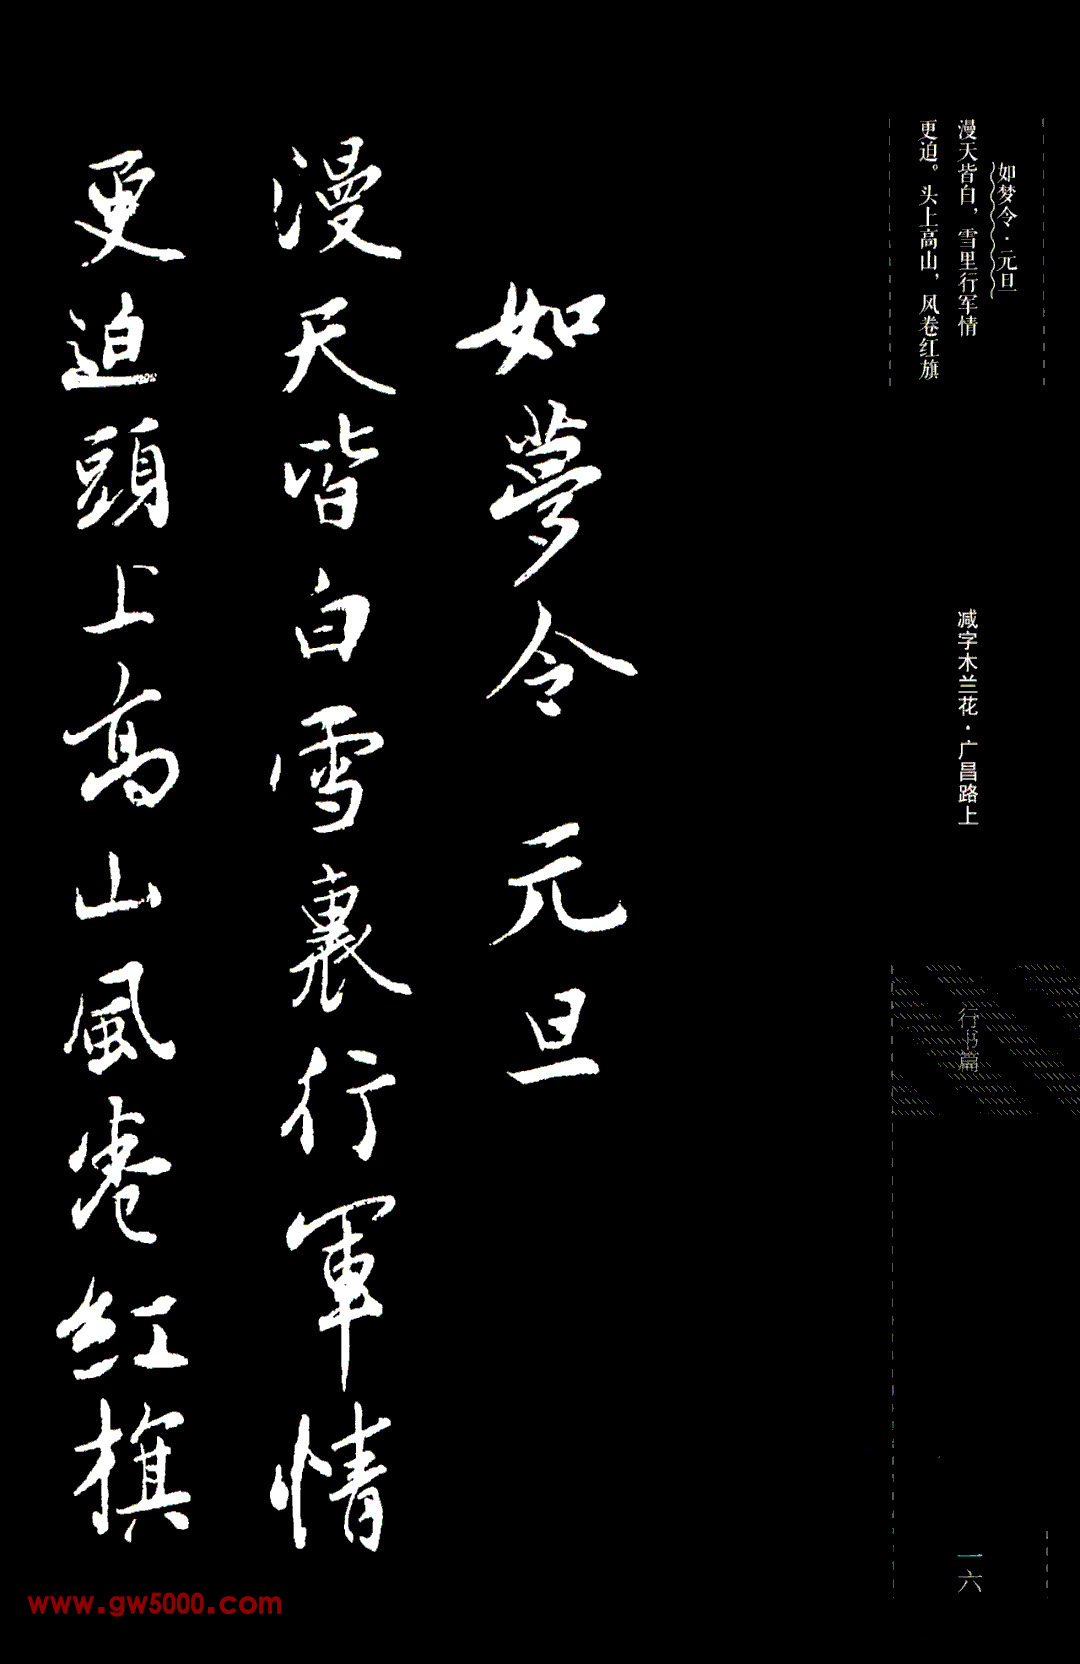 如梦令·元旦
漫天皆白，雪里行军情
更迫。头上高山，风卷红旗
减字木兰花·广昌路上
行书篇
一六
如夢令 元旦
漫天皆白雪裏行軍情
更迫頭上高山風卷紅旗
www.gw5000.com